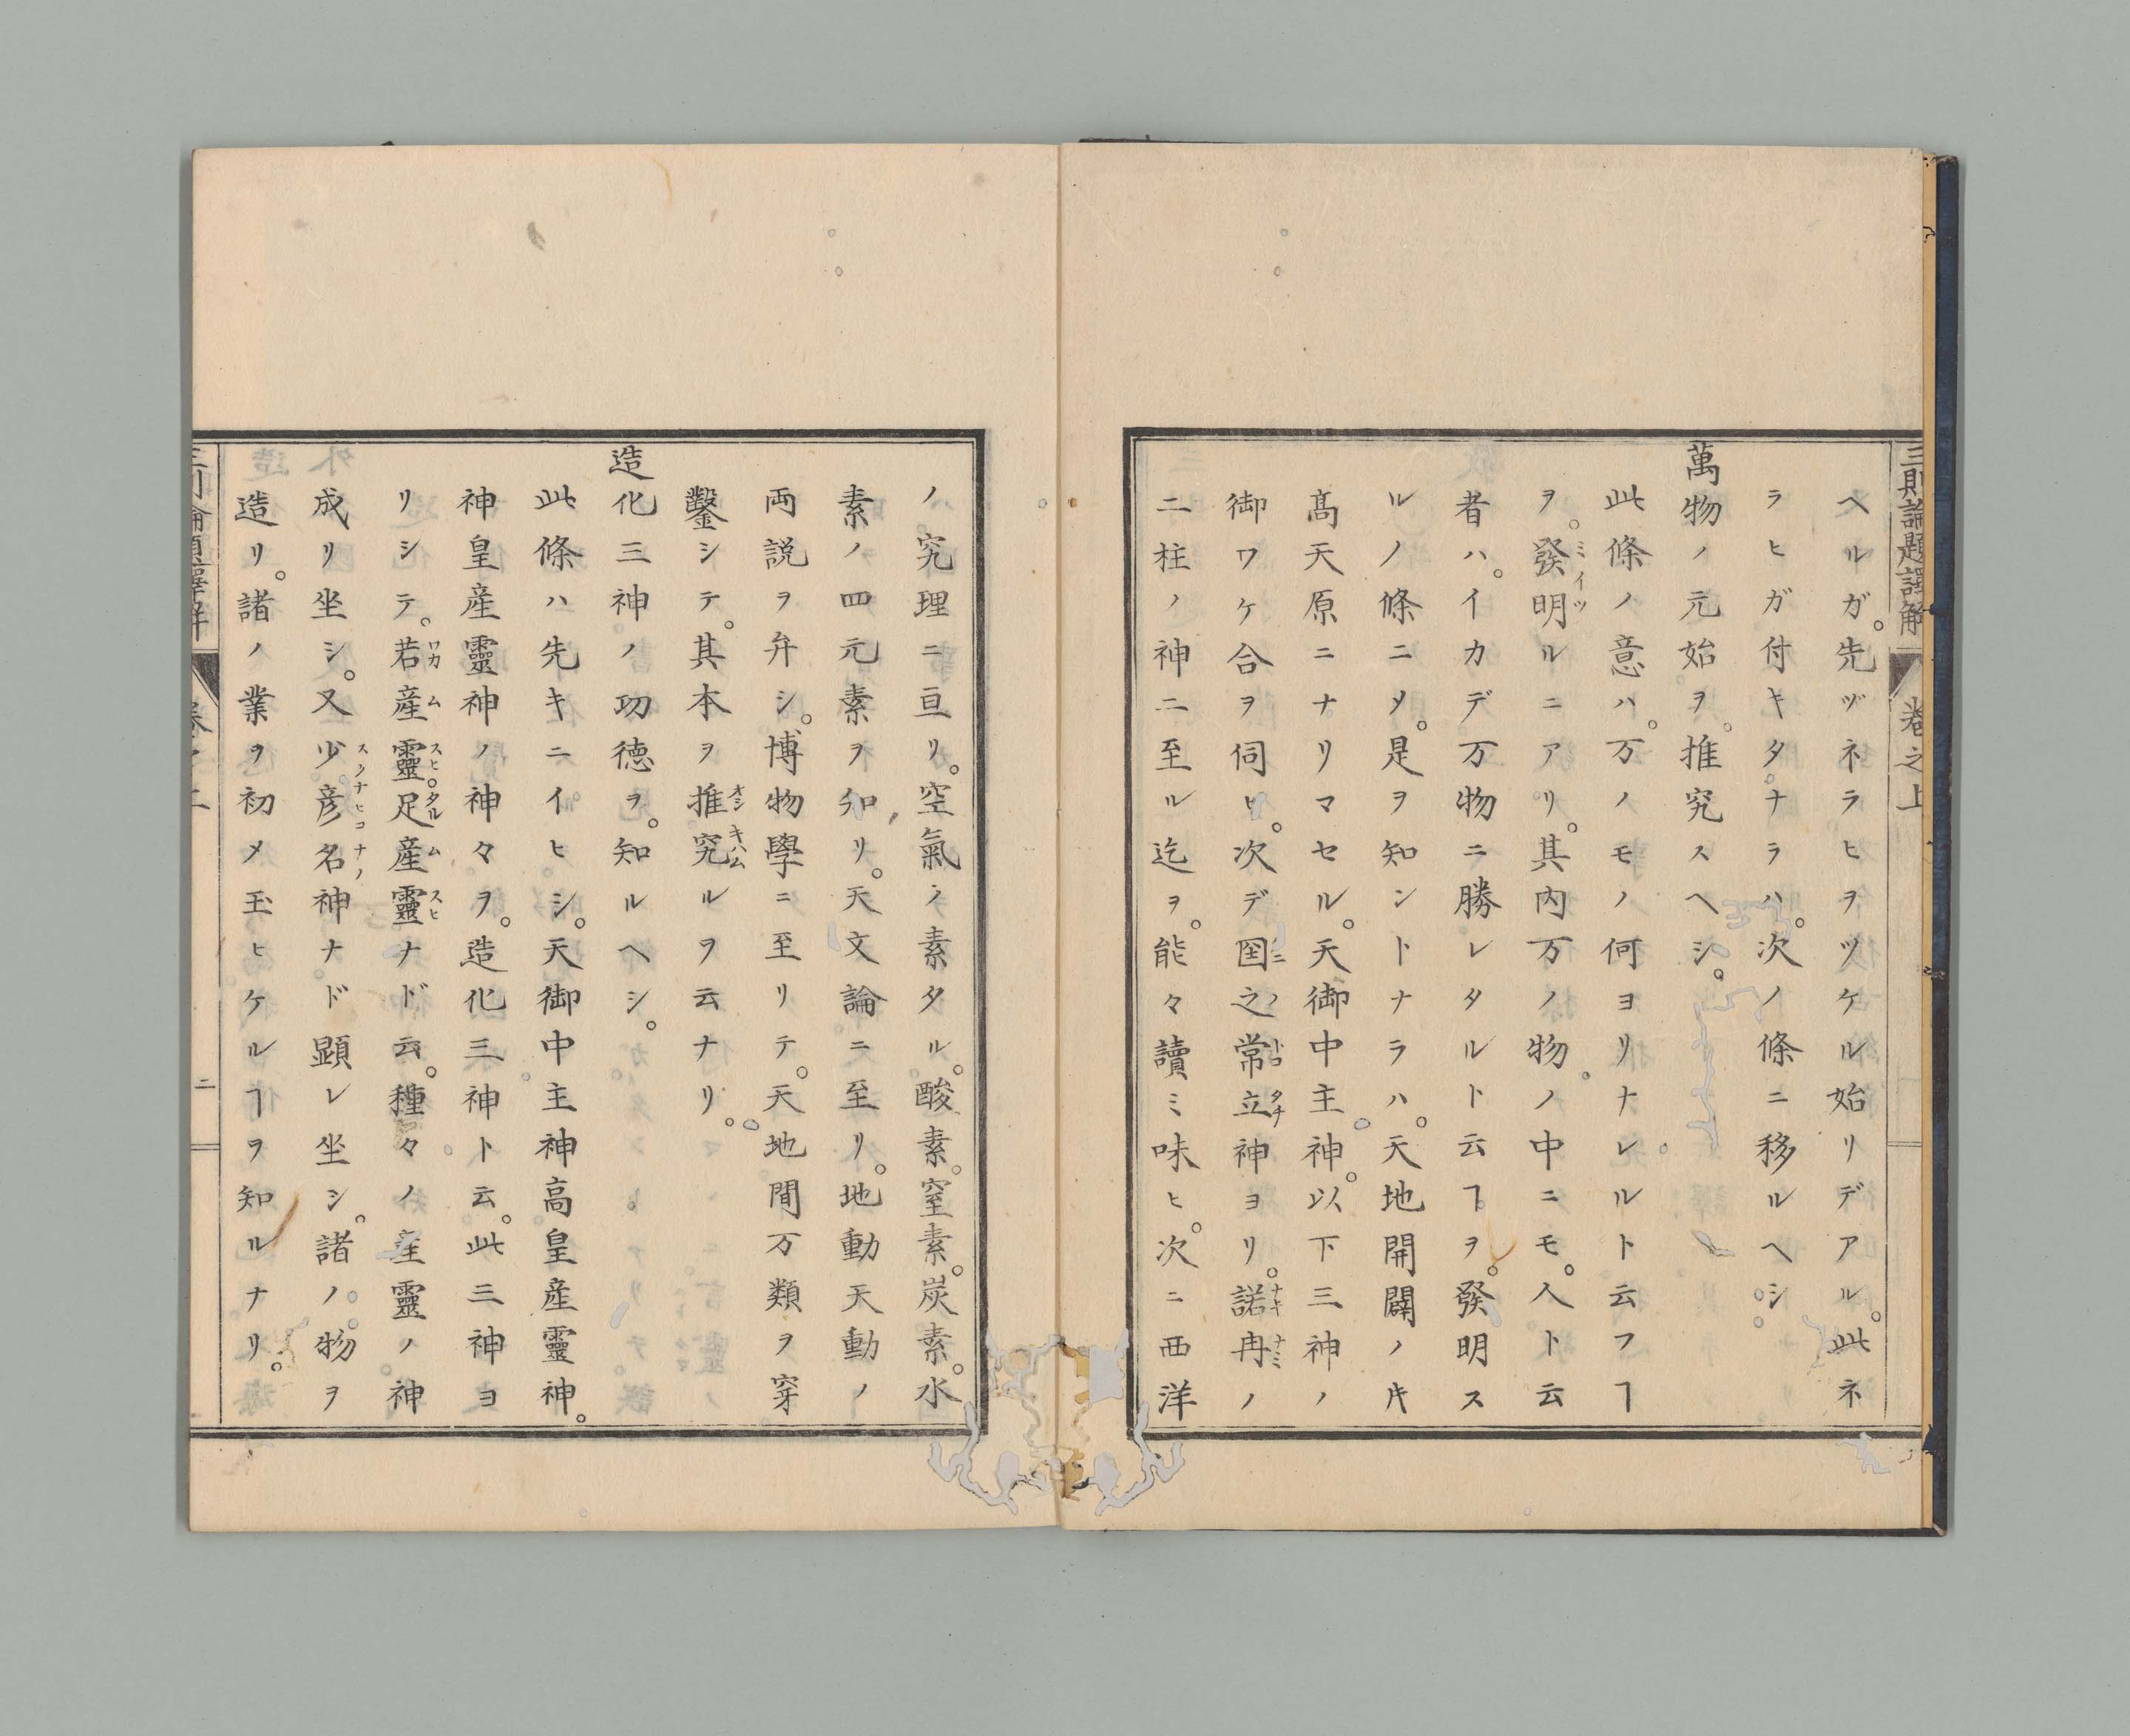 三則論題譯解　卷之上
ヘルガ。先ヅネラヒヲツケル始リデアル。此ネ
ラヒガ付キタナラハ。次ノ條ニ移ルヘシ
萬物ノ元始ヲ。推究スヘシ。
此條ノ意ハ。万ノモノ何ヨリナレルト云フヿ
ヲ。發明ルニアリ。其内万ノ物ノ中ニモ。人ト云
ミイツ
者ハ。イカデ万物ニ勝レタルト云ヿヲ。發明ス
ルノ條ニメ。是ヲ知ントナラハ。天地開闢ノ𪜈
髙天原ニナリマセル。天御中主神。以下三神ノ
御ワケ合ヲ伺ヒ。次デ囶之常立神ヨリ。諾冉ノ
ニノトコタチ　ナキナミ
二柱ノ神ニ至ル迄ヲ。能々讀ミ味ヒ。次ニ西洋
ノ究理ニ亘リ。空氣ノ素タル。酸素。窒素。炭素。水
素ノ四元素ヲ知リ。天文論ニ至リ。地動天動ノ
両説ヲ弁シ。博物學ニ至リテ。天地間万類ヲ穿
鑿シテ。其本ヲ推究ルヲ云ナリ。
オシキハム
造化三神ノ功德ヲ。知ルヘシ。
此條ハ先キニイヒシ。天御中主神高皇産靈神。
神皇産靈神ノ神々ヲ。造化三神ト云。此三神ヨ
リシテ。若産靈足産靈ナド云。種々ノ産靈ノ神
ワカムスヒ。タルムスヒ
成リ坐シ。又少彦名神ナド顕レ坐シ。諸ノ物ヲ
スクナヒコナノ
造リ。諸ノ業ヲ初メ玉ヒケルヿヲ知ルナリ。
二